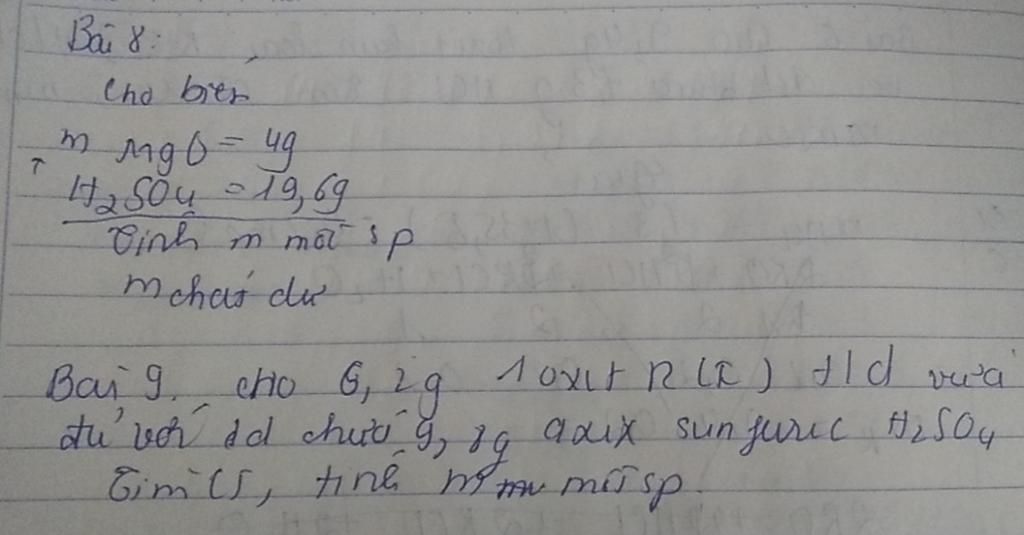 Bài 8:
Cho biết
m MgO = 4g
H₂SO₄ = 19,6g
Tính m mỗi sp
m chất dư
Bài 9. cho 6,2g 1 oxit R(I) t/d vừa
đủ với dd chứa 9,8g axix sunfuric H₂SO₄
Tìm CT, tính m mỗi sp.